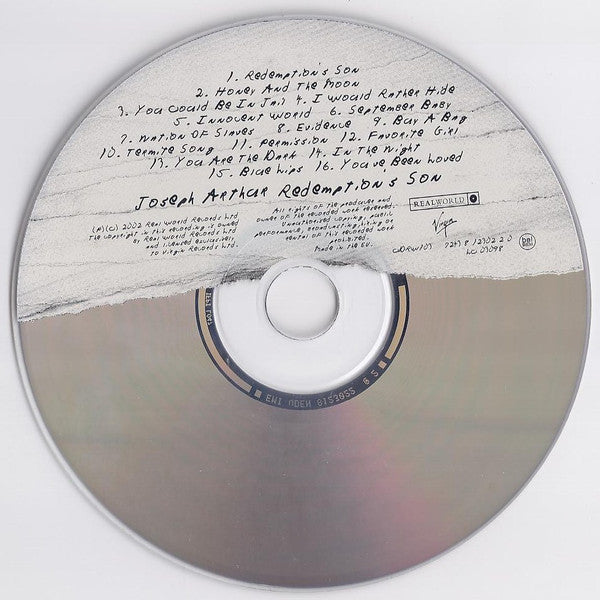 1. Redemption's Son
2. Honey And The Moon
3. You Could Be In Jail 4. I Would Rather Hide
5. Innocent World 6. September Baby
7. Nation Of Slaves 8. Evidence 9. Buy A Bag
10. Termite Song 11. Permission 12. Favorite Girl
13. You Are The Dark 14. In The Night
15. Blue Lips 16. You've Been Loved
Joseph Arthur Redemption's Son
(P)(C) 2002 Real World Records Ltd
The copyright in this recording is owned
by Real World Records Ltd
and licensed exclusively
to Virgin Records Ltd.
All rights of the producer and
owner of the recorded work reserved.
Unauthorised copying, public
performance, broadcasting, hiring or
rental of this recorded work
prohibited.
Made in the E.U.
REALWORLD
Virgin
CDRW109
7243 8 12902 2 0
LC 07098
EMI UDEN 8123055